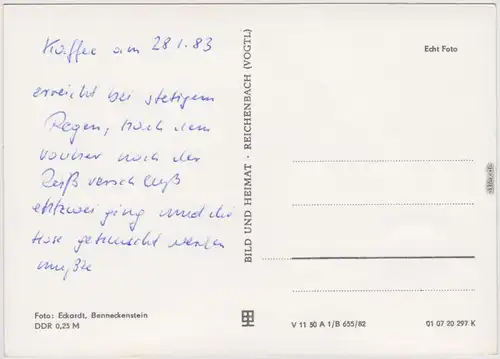 Kaffee am 28.1.83
erreicht bei stetigem
Regen, nach dem
vorher noch der
Reißverschluß
entzwei ging und die
Hose gemacht werden
mußte
Foto: Eckardt, Benneckenstein
DDR 0,25 M
BILD UND HEIMAT · REICHENBACH (VOGTL)
Echt Foto
V 11 50 A 1/B 655/82
01 07 20 297 K